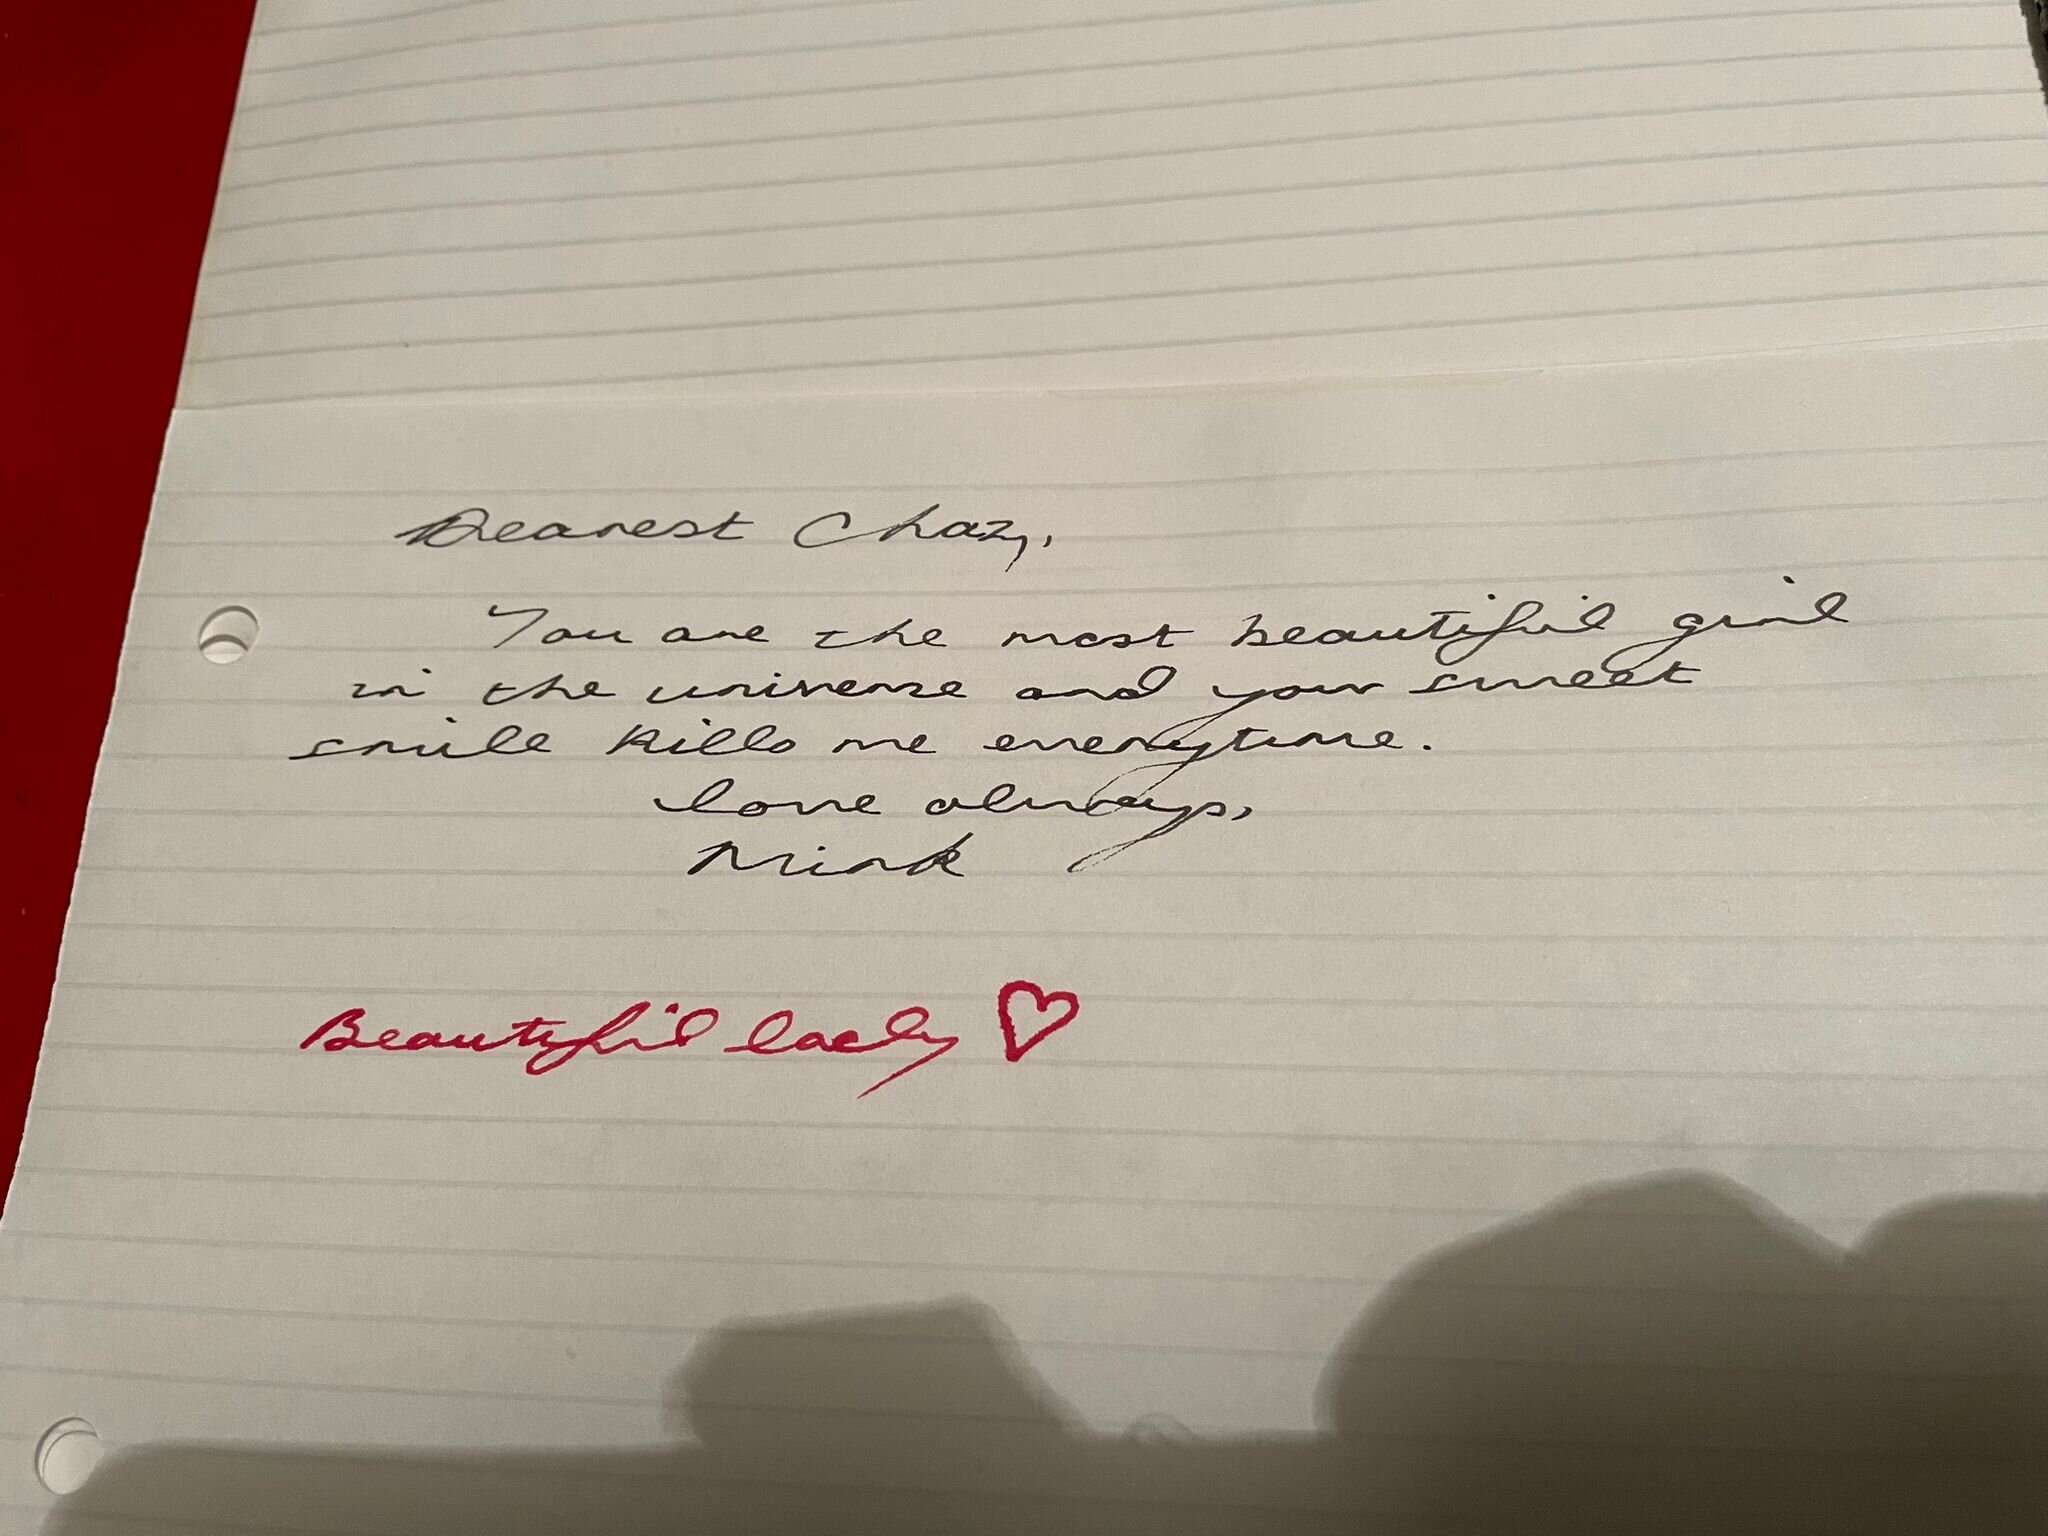 Dearest Chaz,
You are the most beautiful girl
in the universe and your sweet
smile kills me everytime.
love always,
Mink
Beautiful lady